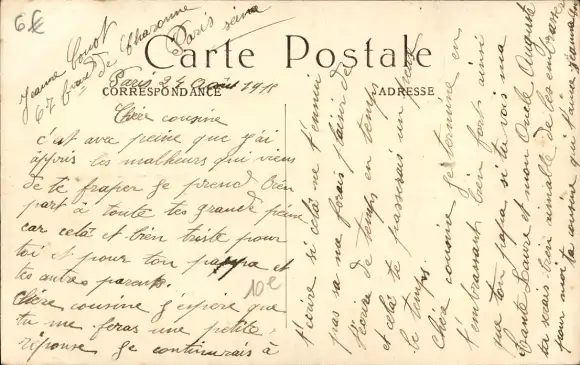 6€
Jeanne
67 de Charonne
Paris
Carte Postale
Paris 24 Août 1918
CORRESPONDANCE
ADRESSE
Chère cousine
c'est avec peine que j'ai
appris les malheurs qui viens
de te fraper je prend bien
part à toute tes grande peine
car celà et bien triste pour
toi et pour ton pappa et
tes autres parents.
Chère cousine j'espère que
tu me feras une petite
réponse je continurais à
10€
t'écrire si celà ne t'ennui
pas sa me ferais plaisir de
t'écrire de temps en temps
et celà te passerais un peu
le temps.
Chère cousine je termine en
t'embrassant bien fort ainsi
que ton papa si tu vois ma
tante Laure et mon Oncle Auguste
tu serais bien aimable de les embrasser
pour moi ta cousine qui t'aime Jeanne